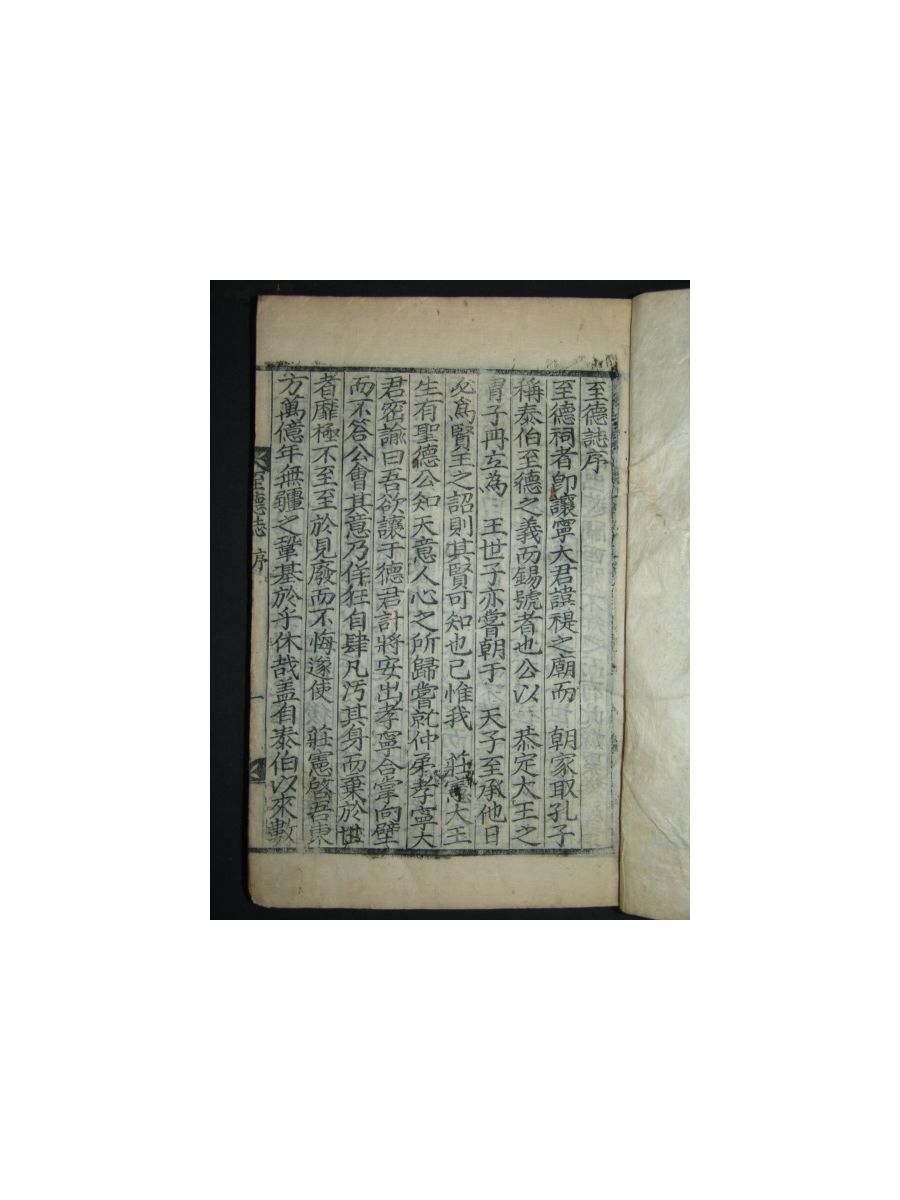 至德誌序
至德祠者卽讓寧大君諱禔之廟而 朝家取孔子
稱泰伯至德之義而錫號者也公以 恭定大王之
胄子冊立為 王世子亦嘗朝于 天子至承他日
必爲賢王之詔則其賢可知也已惟我 莊憲大王
生有聖德公知天意人心之所歸嘗就仲弟孝寧大
君密諭曰吾欲讓于德君計將安出孝寧合掌向壁
而不答公會其意乃佯狂自肆凡汚其身而棄於世
者靡極不至至於見廢而不悔遂使 莊憲啓吾東
方萬億年無疆之鞏基於乎休哉盖自泰伯以來數
至德誌 序 一